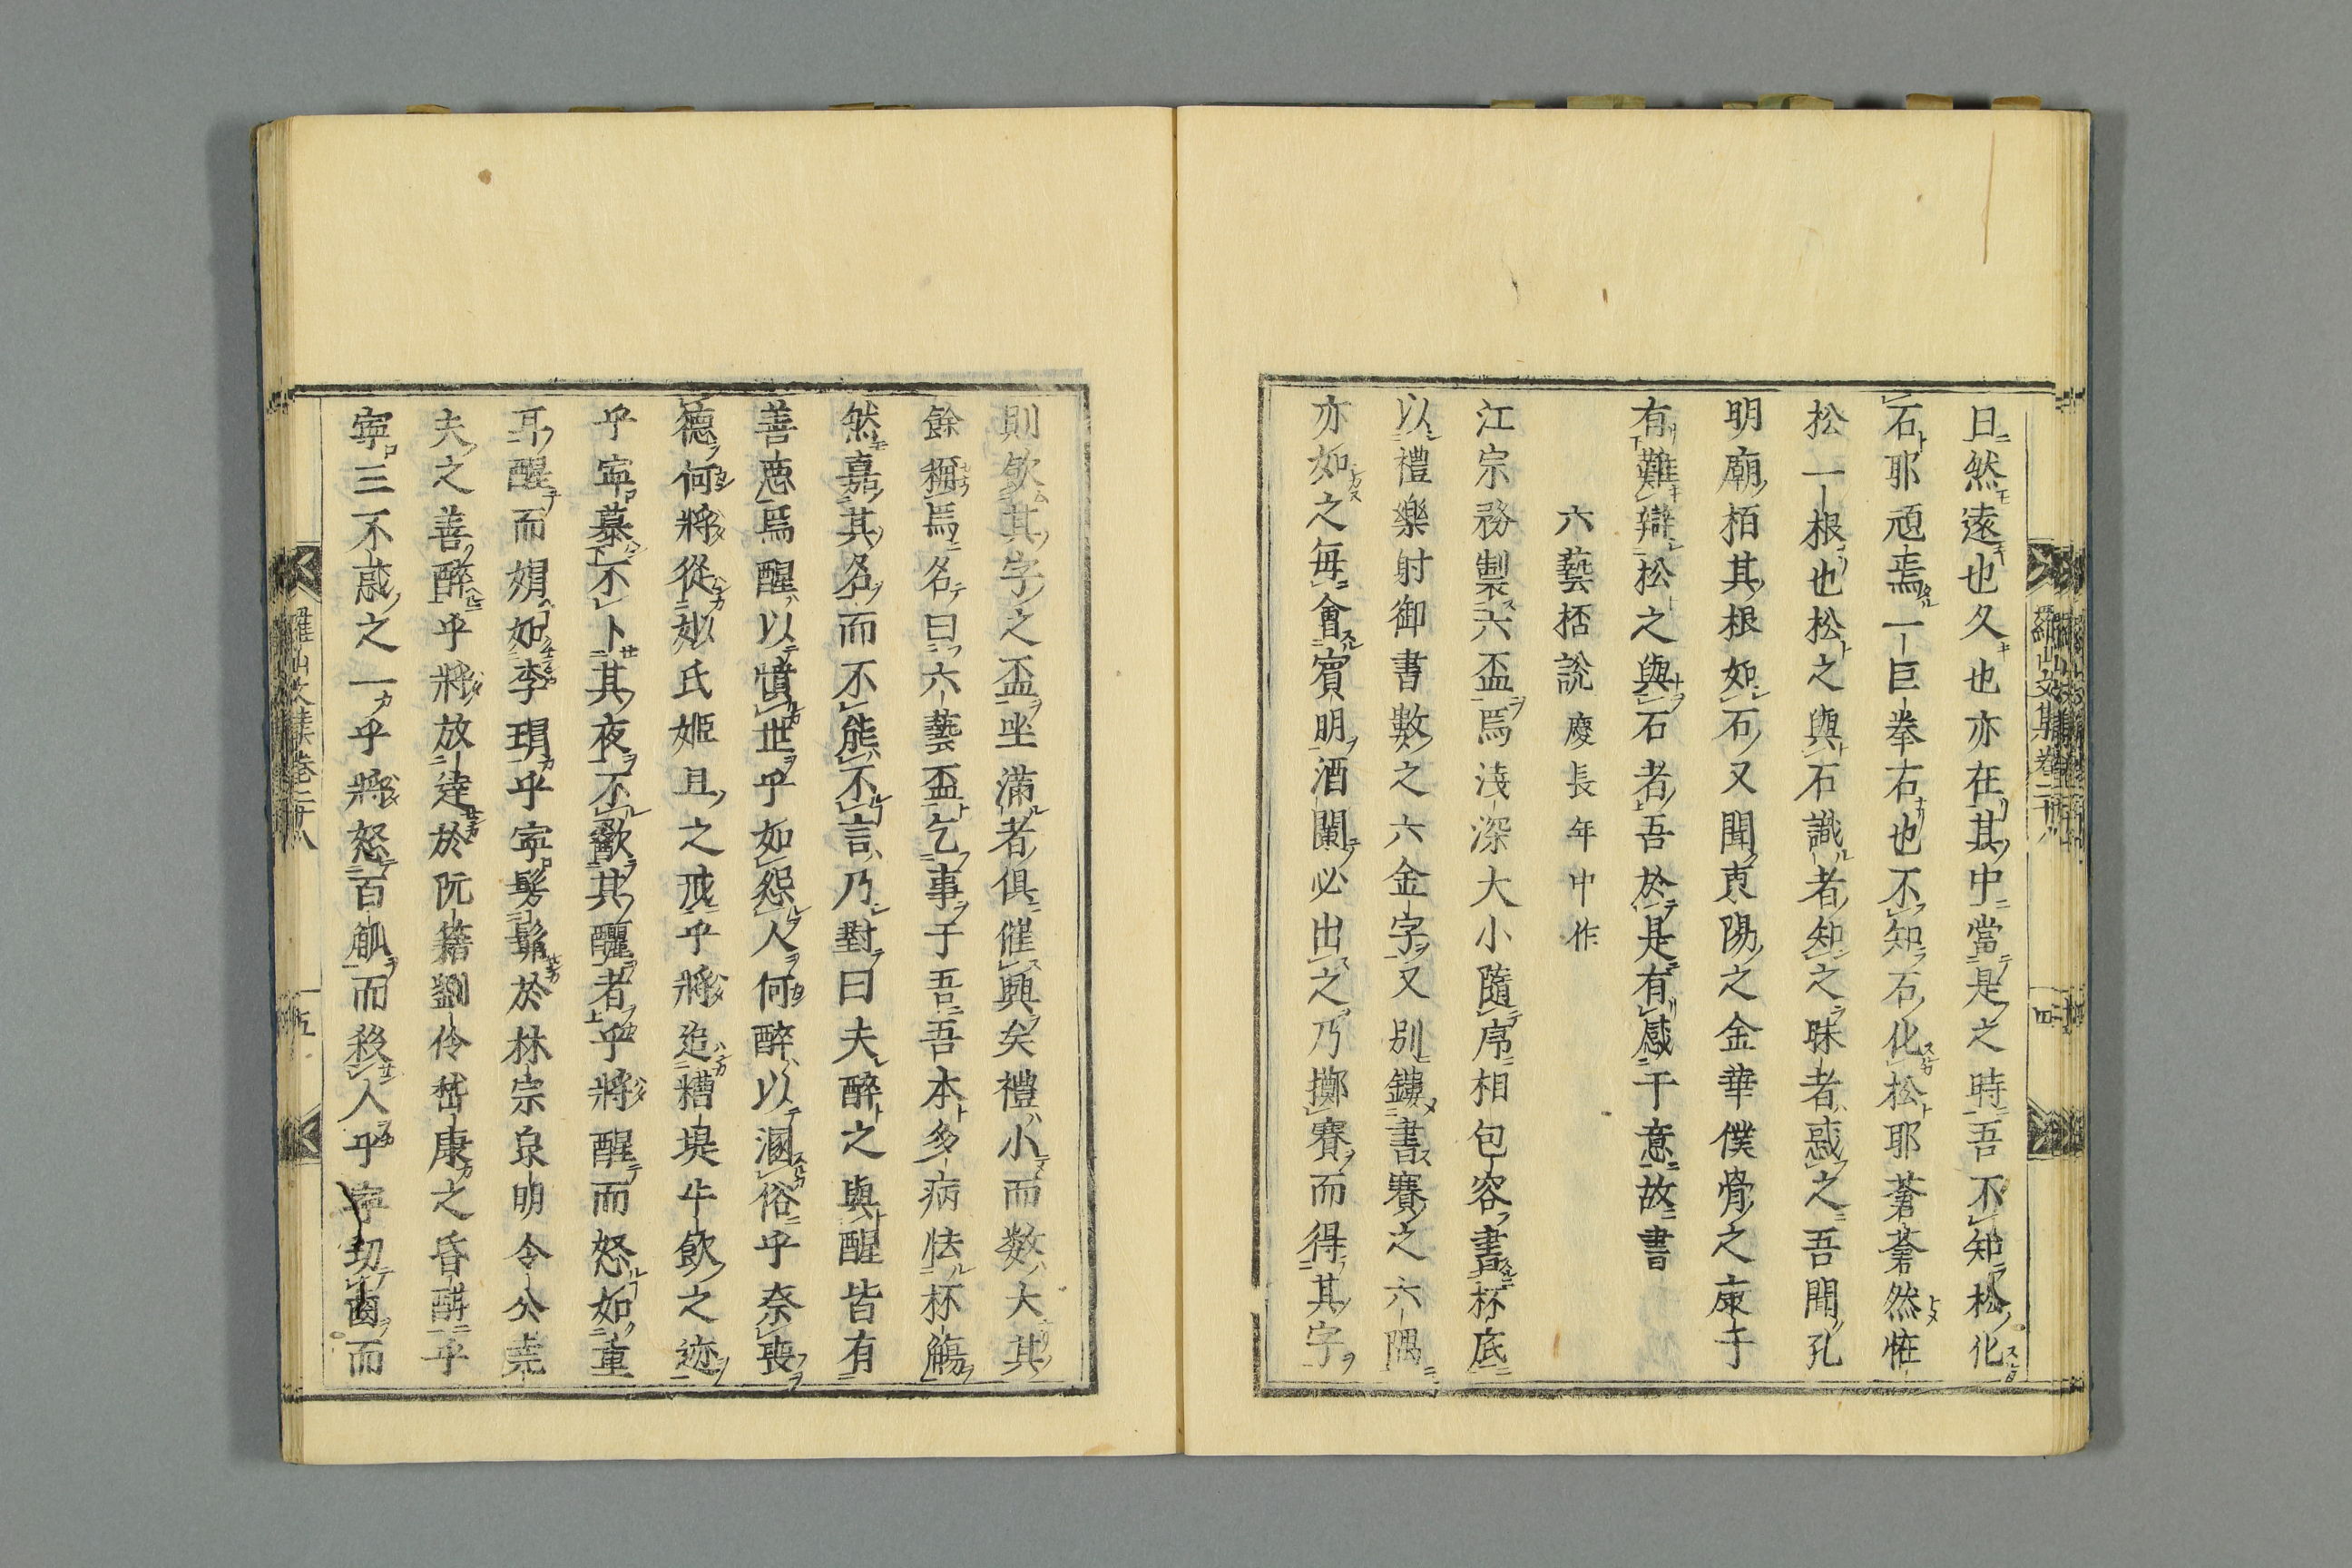 日然遠也久也亦在其中當是之時吾不知松化
石耶頑焉一巨拳石也不知石化松耶蒼蒼然恠
松一根也松之與石識者知之昧者惑之吾聞孔
明廟栢其根如石又聞東陽之金華僕骨之康干
有難辯松之與石者吾於是有感干意故書
六藝桮說慶長年中作
江宗務製六盃焉淺深大小隨序相包容書杯底
以禮樂射御書數之六金字又別鏤書賽之六隅
亦如之每會賓明酒闌必出之乃擲賽而得其字
則飲其字之盃坐滿者俱催興矣禮小而数大其
餘稱焉名曰六藝盃乞事于吾吾本多病怯杯觴
然嘉其名而不能不言乃對曰夫醉之與醒皆有
善惡焉醒以憤世乎如怨人何醉以溷俗乎奈喪
德何將從姒氏姬且之戒乎將追糟埉牛飲之迹
乎寧慕不卜其夜不歠其醨者乎將醒而怒如重
耳醒而娟如李琄乎寧髣髴於林宗泉明令公堯
夫之善醉乎將放達於阮籍劉伶嵆康之昏酣乎
寧三不惑之一乎將怒百觚而殺人乎寧切齒而
羅山文集卷二十八
四
羅山文集卷二十八
五